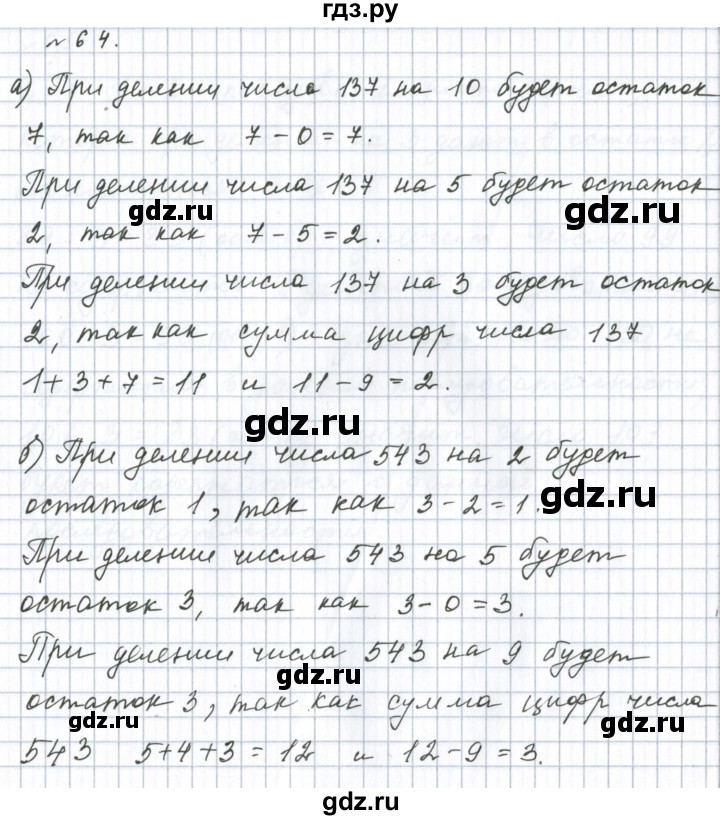 гдз.ру
№ 64.
а) При делении числа 137 на 10 будет остаток
7, так как 7 - 0 = 7.
При делении числа 137 на 5 будет остаток
gdz.ru
gdz.ru
2, так как 7 - 5 = 2.
При делении числа 137 на 3 будет остаток
2, так как сумма цифр числа 137
1 + 3 + 7 = 11 и 11 - 9 = 2.
gdz.ru
б) При делении числа 543 на 2 будет
остаток 1, так как 3 - 2 = 1.
gdz.ru
При делении числа 543 на 5 будет
остаток 3, так как 3 - 0 = 3.
При делении числа 543 на 9 будет
gdz.ru
остаток 3, так как сумма цифр числа
gdz.ru
gdz.ru
543 5 + 4 + 3 = 12 и 12 - 9 = 3.
gdz.ru